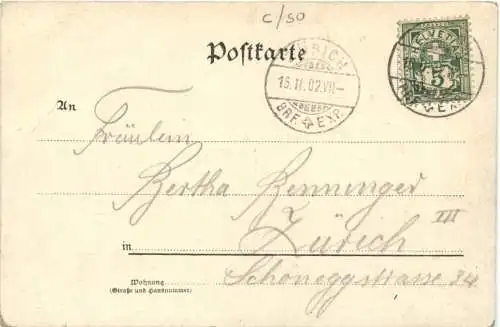 c/50
Postkarte
HELVETIA
5
ZÜRICH
15.II.02.VII-
BRF. EXP.
An
Fräulein
Bertha Benninger
Zürich III
in
Schöneggstrasse 34
Wohnung
(Straße und Hausnummer)